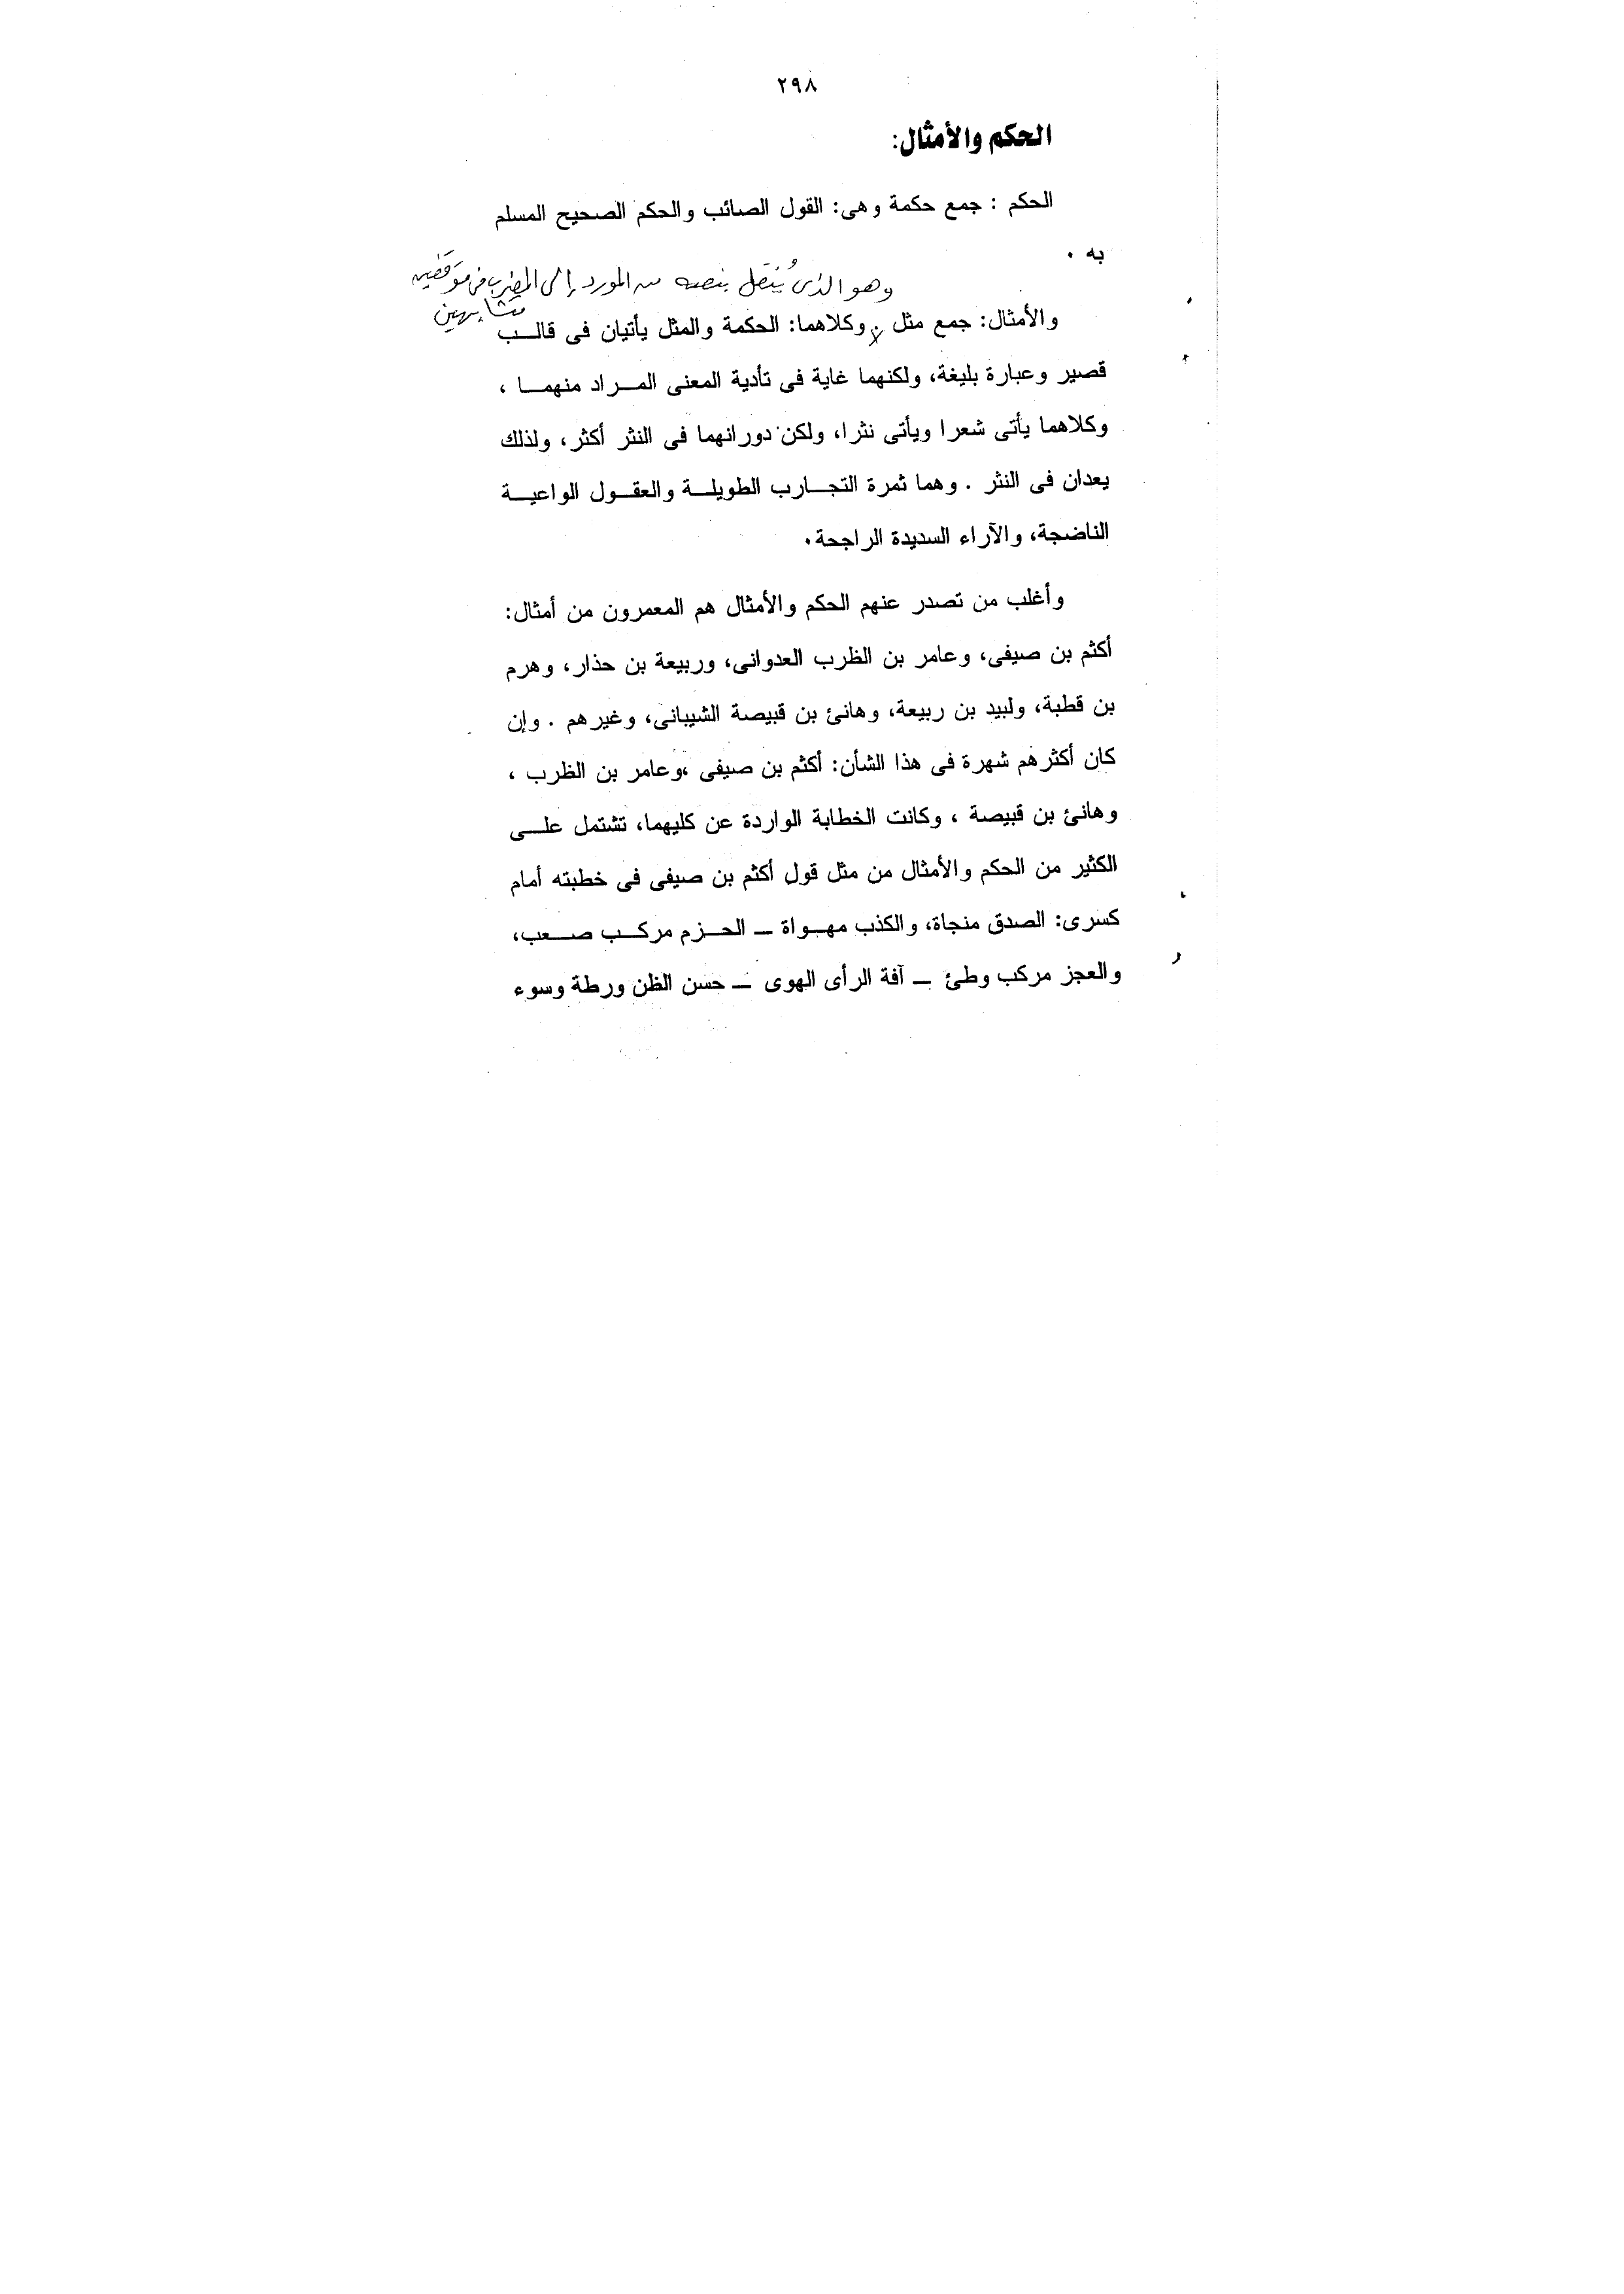 ٢٩٨
الحكم والأمثال:
الحكم : جمع حكمة وهى: القول الصائب والحكم الصحيح المسلم
به .
وهو الذى يُنقل بنصه من المورد إلى المضرب فى موقفين
متشابهين
والأمثال: جمع مثل . وكلاهما: الحكمة والمثل يأتيان فى قالب
قصير وعبارة بليغة، ولكنهما غاية فى تأدية المعنى المراد منهما ،
وكلاهما يأتى شعرا ويأتى نثرا، ولكن دورانهما فى النثر أكثر، ولذلك
يعدان فى النثر . وهما ثمرة التجارب الطويلة والعقول الواعية
الناضجة، والآراء السديدة الراجحة.
وأغلب من تصدر عنهم الحكم والأمثال هم المعمرون من أمثال:
أكثم بن صيفى، وعامر بن الظرب العدوانى، وربيعة بن حذار، وهرم
بن قطبة، ولبيد بن ربيعة، وهانئ بن قبيصة الشيبانى، وغيرهم . وإن
كان أكثرهم شهرة فى هذا الشأن: أكثم بن صيفى ،وعامر بن الظرب ،
وهانئ بن قبيصة ، وكانت الخطابة الواردة عن كليهما، تشتمل على
الكثير من الحكم والأمثال من مثل قول أكثم بن صيفى فى خطبته أمام
كسرى: الصدق منجاة، والكذب مهواة ــ الحزم مركب صعب،
والعجز مركب وطئ ــ آفة الرأى الهوى ــ حسن الظن ورطة وسوء